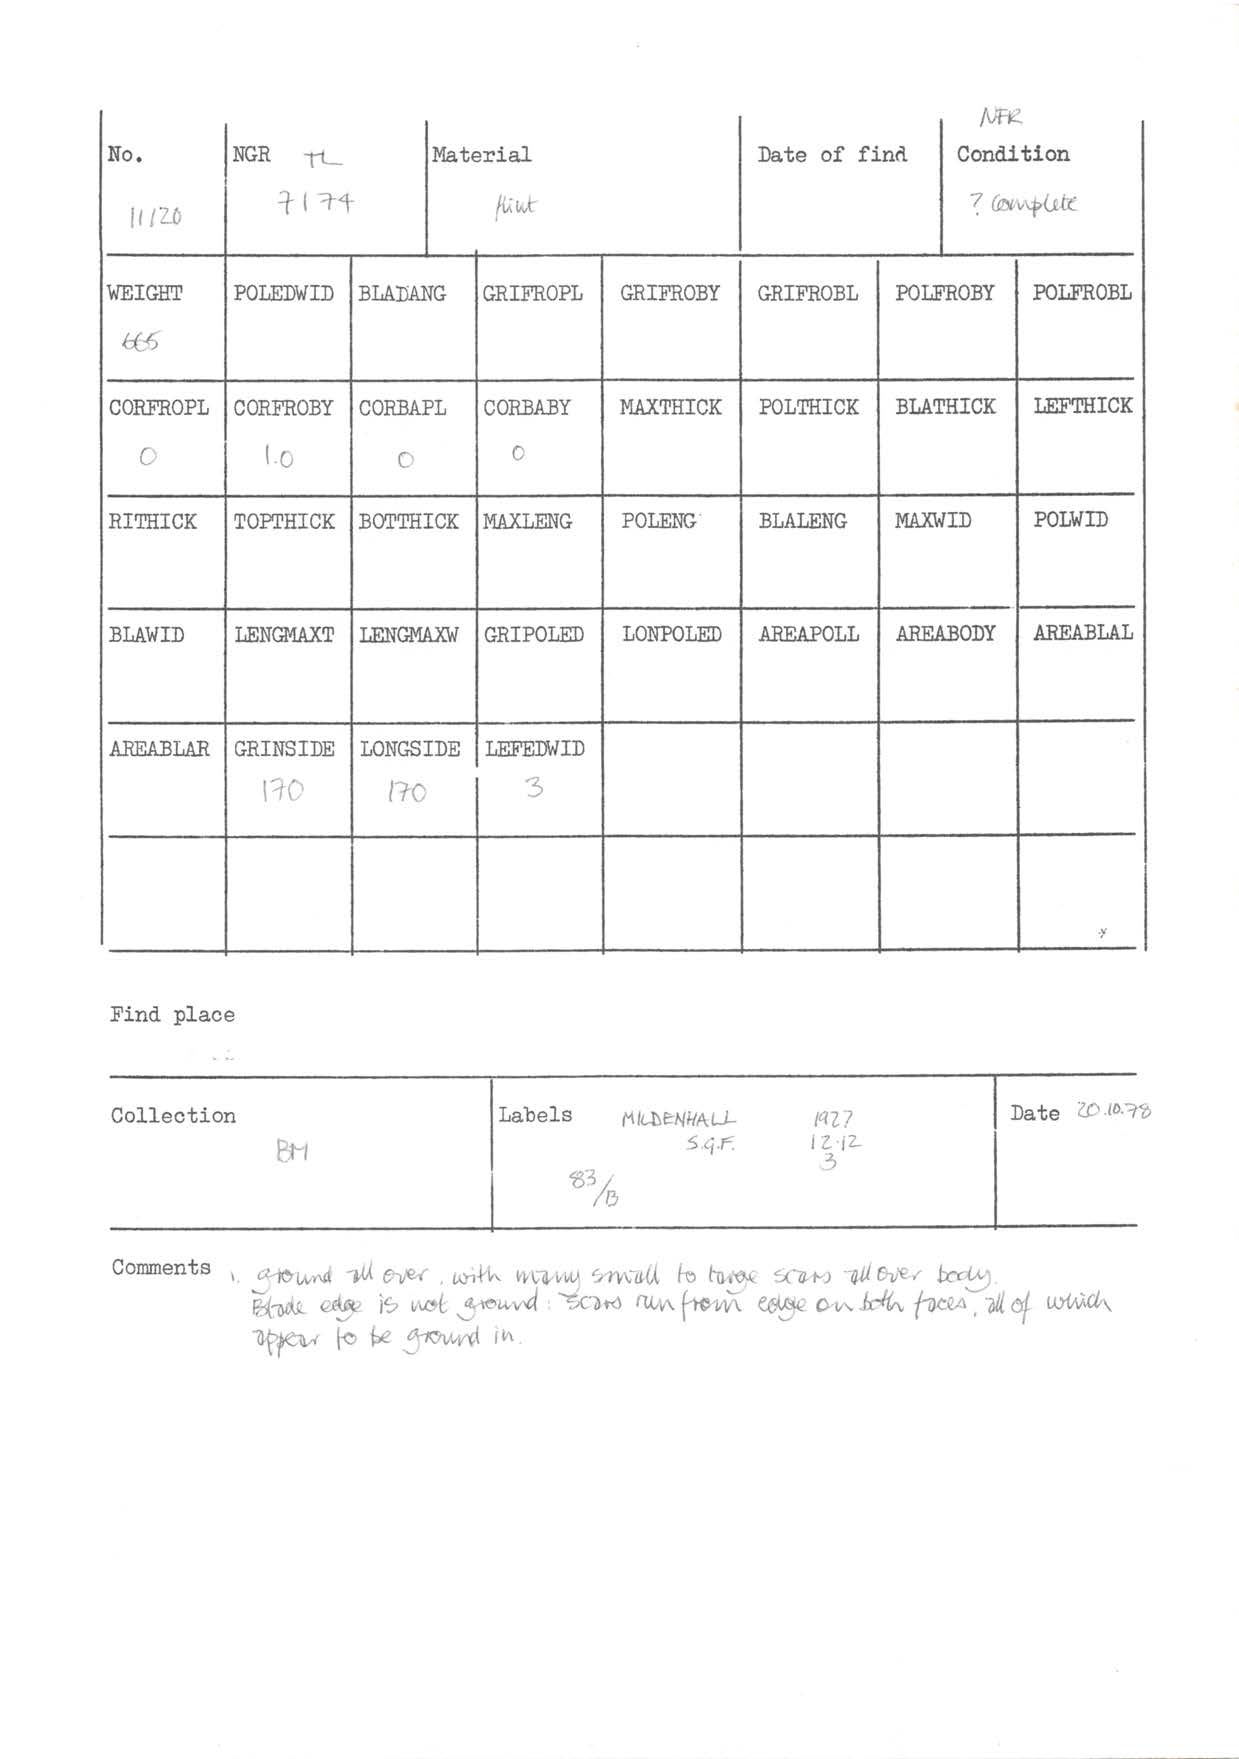 NFR
No. NGR TL Material Date of find Condition
11/20 7174 flint ? complete
WEIGHT POLEDWID BLADANG GRIFROPL GRIFROBY GRIFROBL POLFROBY POLFROBL
665
CORFROPL CORFROBY CORBAPL CORBABY MAXTHICK POLTHICK BLATHICK LEFTHICK
0 1.0 0 0
RITHICK TOPTHICK BOTTHICK MAXLENG POLENG BLALENG MAXWID POLWID
BLAWID LENGMAXT LENGMAXW GRIPOLED LONPOLED AREAPOLL AREABODY AREABLAL
AREABLAR GRINSIDE LONGSIDE LEFEDWID
170 170 3
Find place
Collection Labels MILDENHALL 1927 Date 20.10.78
BM S.G.F. 12.12
3
83/B
Comments 1. ground all over, with many small to large scars all over body.
Blade edge is not ground: scars run from edge on both faces, all of which
appear to be ground in.